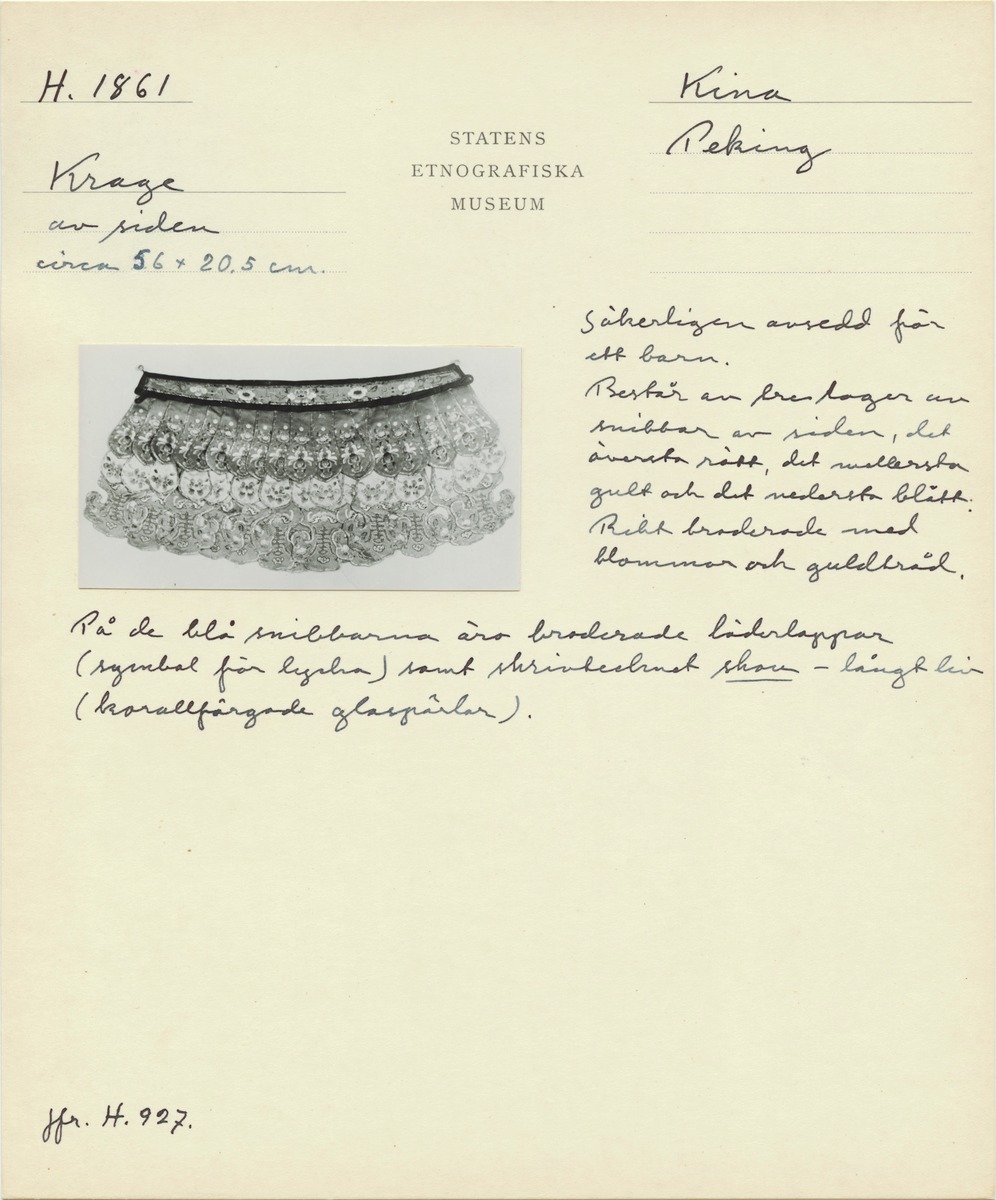 H. 1861
Kina
STATENS
ETNOGRAFISKA
MUSEUM
Peking
Krage
av siden
circa 56 × 20.5 cm.
Säkerligen avsedd för
ett barn.
Består av tres lager av
snibbar av siden, det
översta rött, det mellersta
gult och det nedersta blått.
Rikt broderade med
blommor och guldtråd.
På de blå snibbarna äro broderade läderlappar
(symbol för lycka) samt skrivtecknet shou – långt liv
(korallfärgade glaspärlor).
Jfr. H. 927.